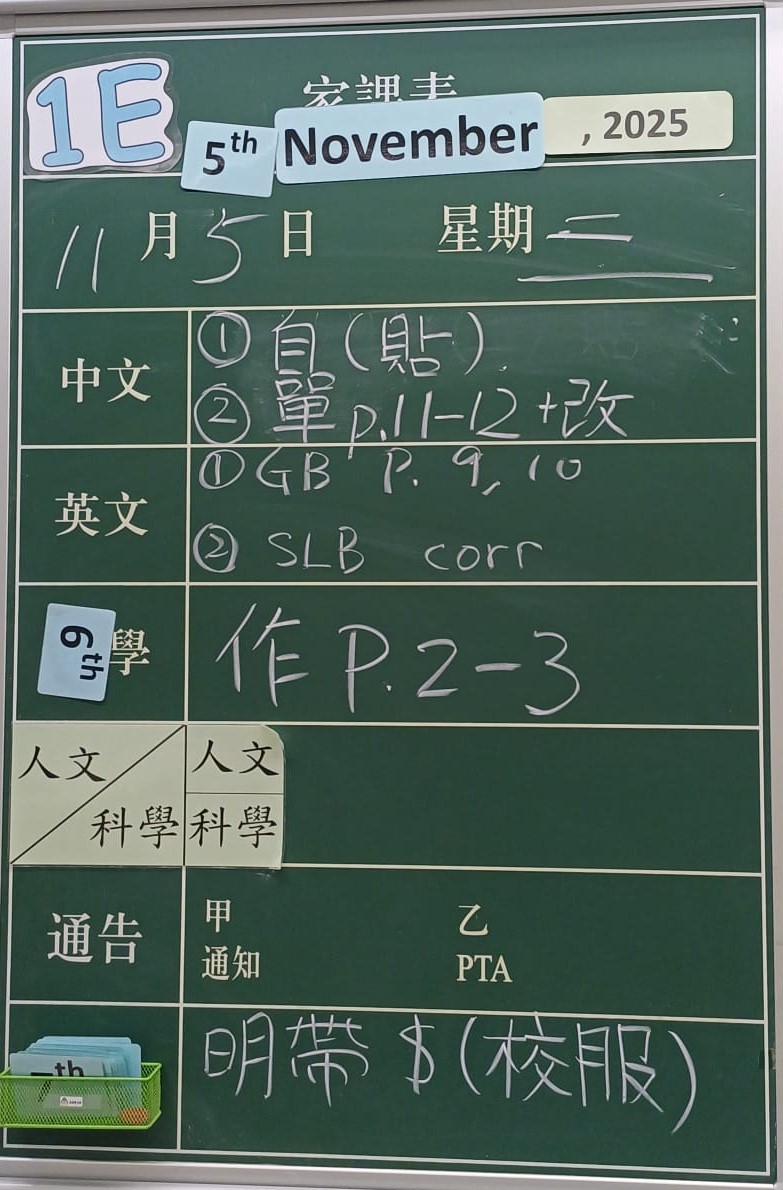 1E
家課表
5th November , 2025
11月5日 星期二
中文 ①自(貼)
②單p.11-12+改
英文 ①GB P. 9, 10
②SLB corr
6th
學 作P.2-3
人文 人文
科學 科學
通告 甲 乙
通知 PTA
明帶$(校服)
7th